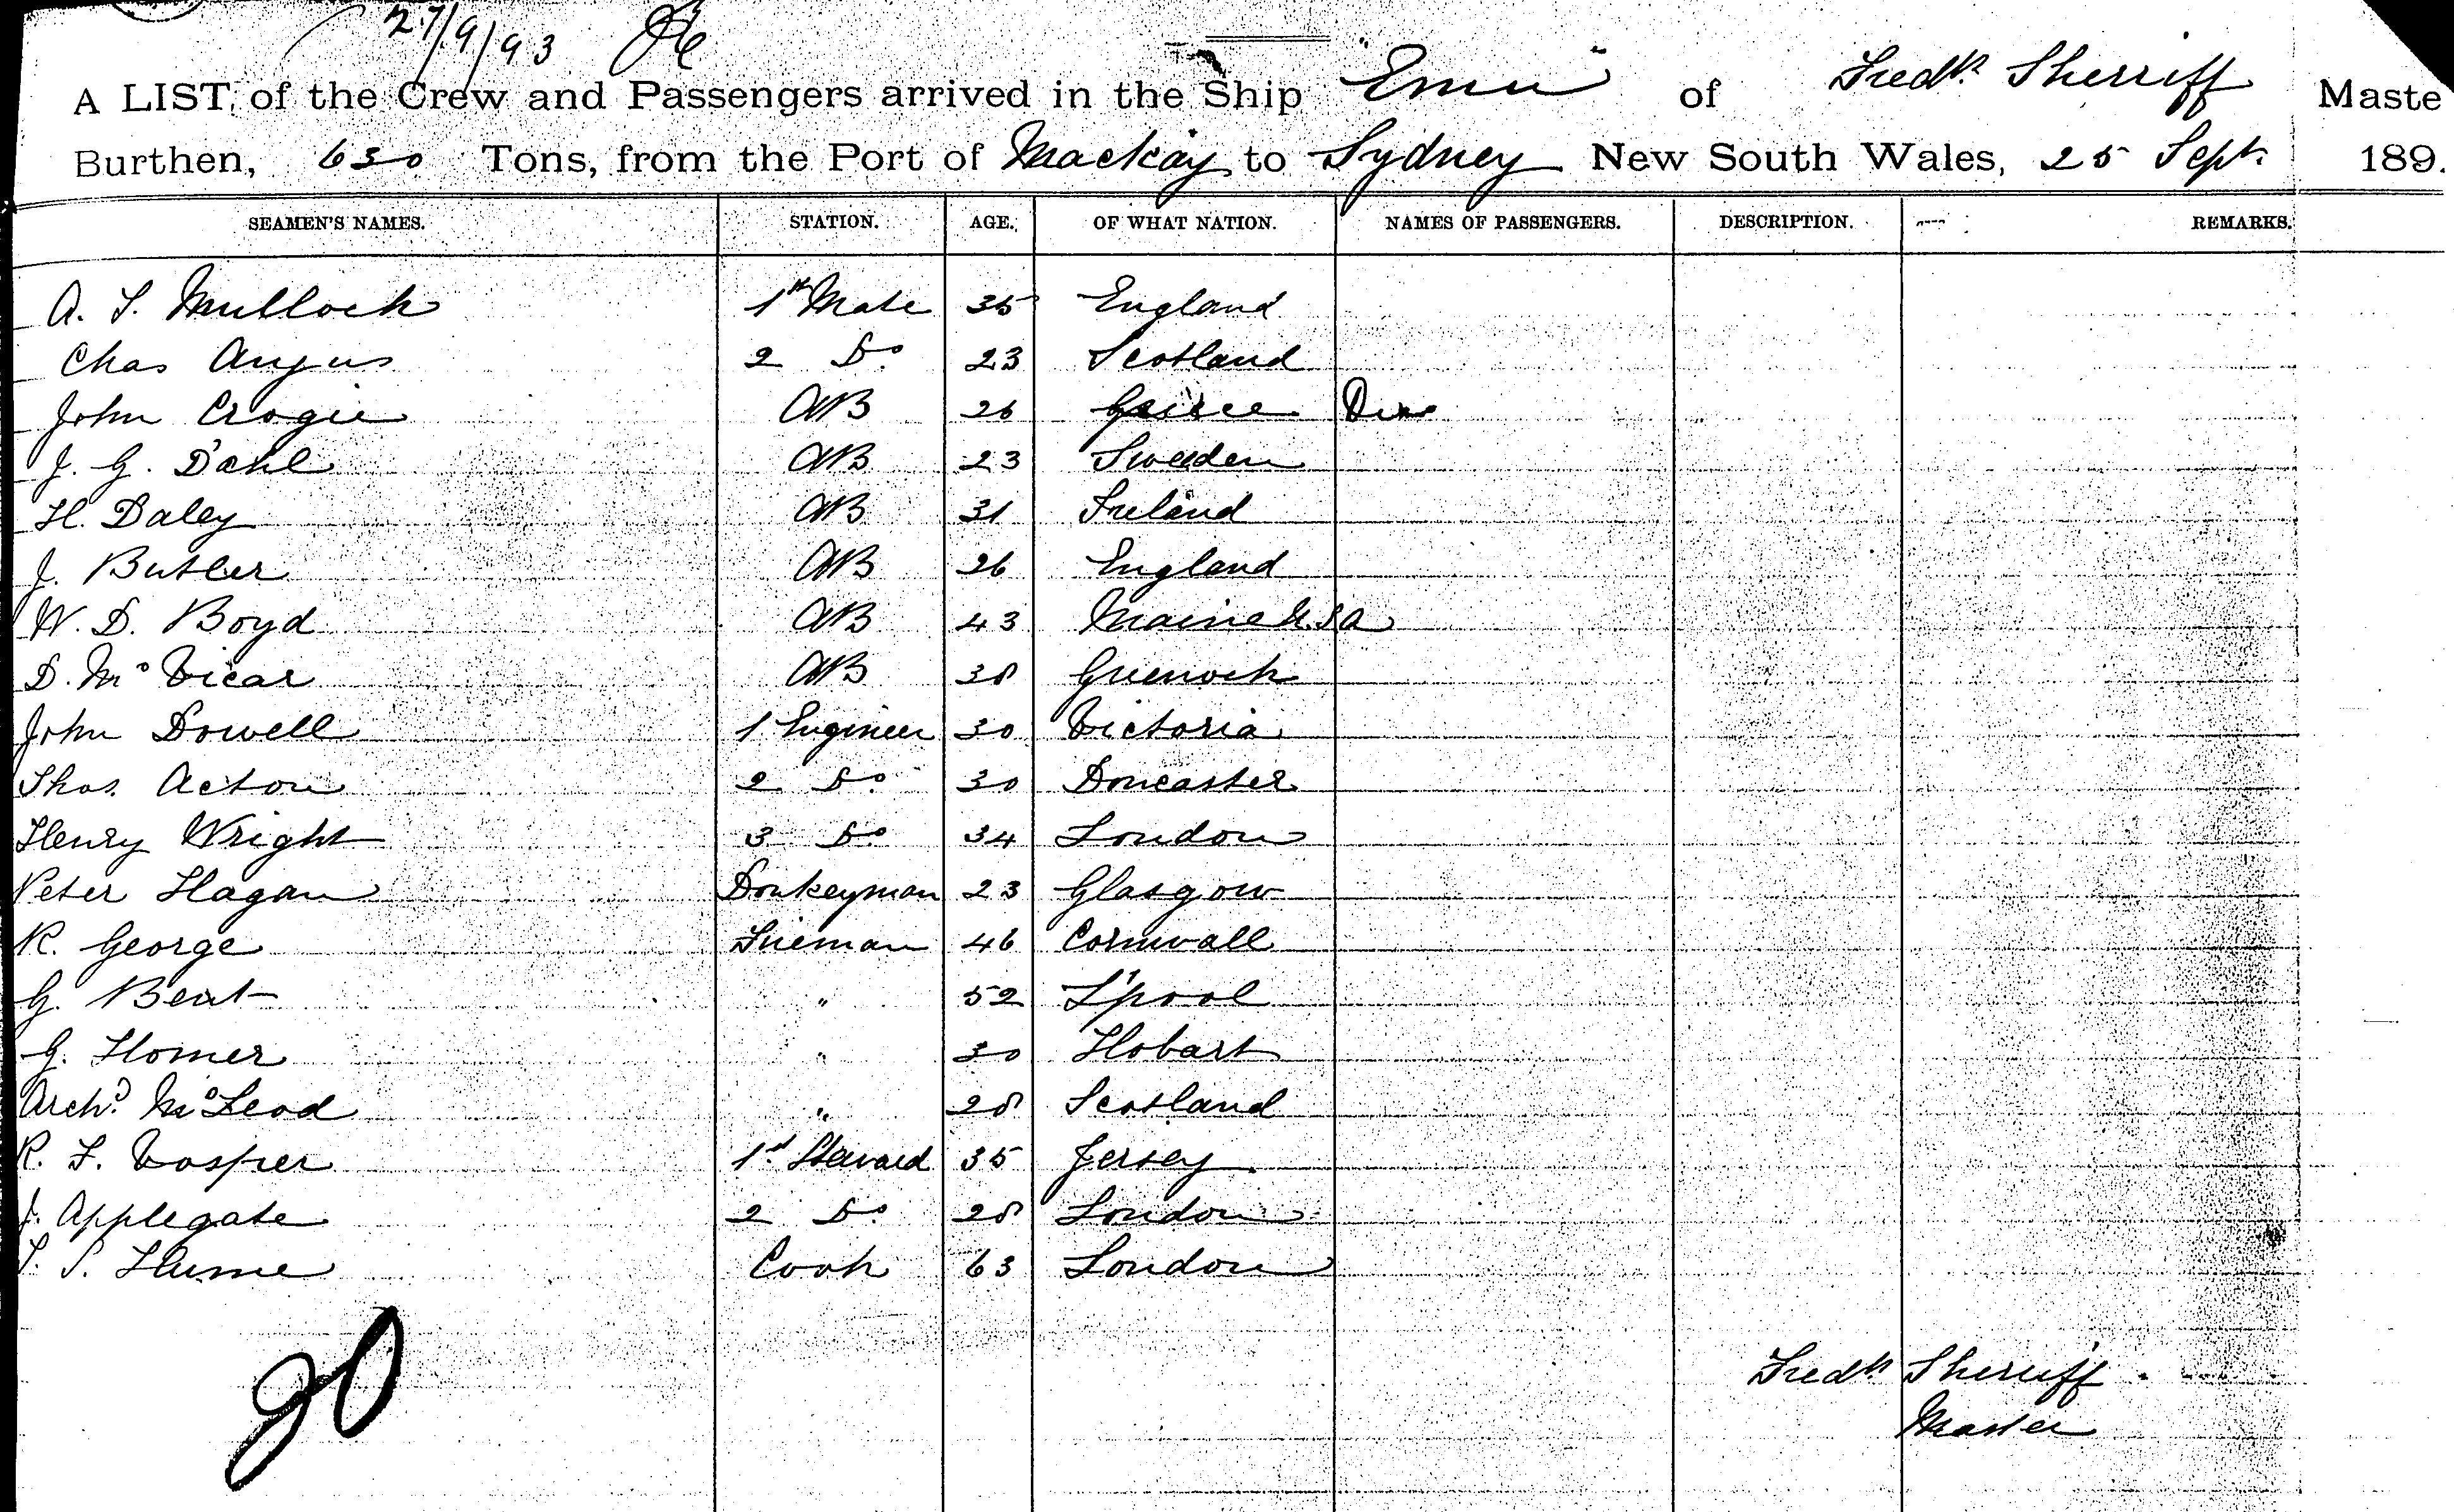 27/9/93
A LIST, of the Crew and Passengers arrived in the Ship "Emu" of Fredk. Sherriff Maste
Burthen, 630 Tons, from the Port of Mackay to Sydney New South Wales, 25 Sept. 189.
SEAMEN'S NAMES. STATION. AGE. OF WHAT NATION. NAMES OF PASSENGERS. DESCRIPTION. REMARKS.
A. S. Mulloch 1st Mate 35 England
Chas Angus 2 Do 23 Scotland
John Crogie AB 26 Greece
J. G. Dahl AB 23 Sweeden
H. Daley AB 31 Ireland
J. Butler AB 26 England
W. D. Boyd AB 43 Maine U.S.A
D. Mc Vicar AB 38 Greenock
John Dowell 1 Engineer 30 Victoria
Thos. Acton 2 Do 30 Doncaster
Henry Wright 3 Do 34 London
Peter Hagan Donkeyman 23 Glasgow
R. George Fireman 46 Cornwall
G. Bent " 52 L'pool
G. Homer " 30 Hobart
Archd. McLeod " 28 Scotland
R. F. Vosper 1st Steward 35 Jersey
J. Applegate 2 Do 28 London
T. S. Hume Cook 63 London
Fredk Sherriff.
Master